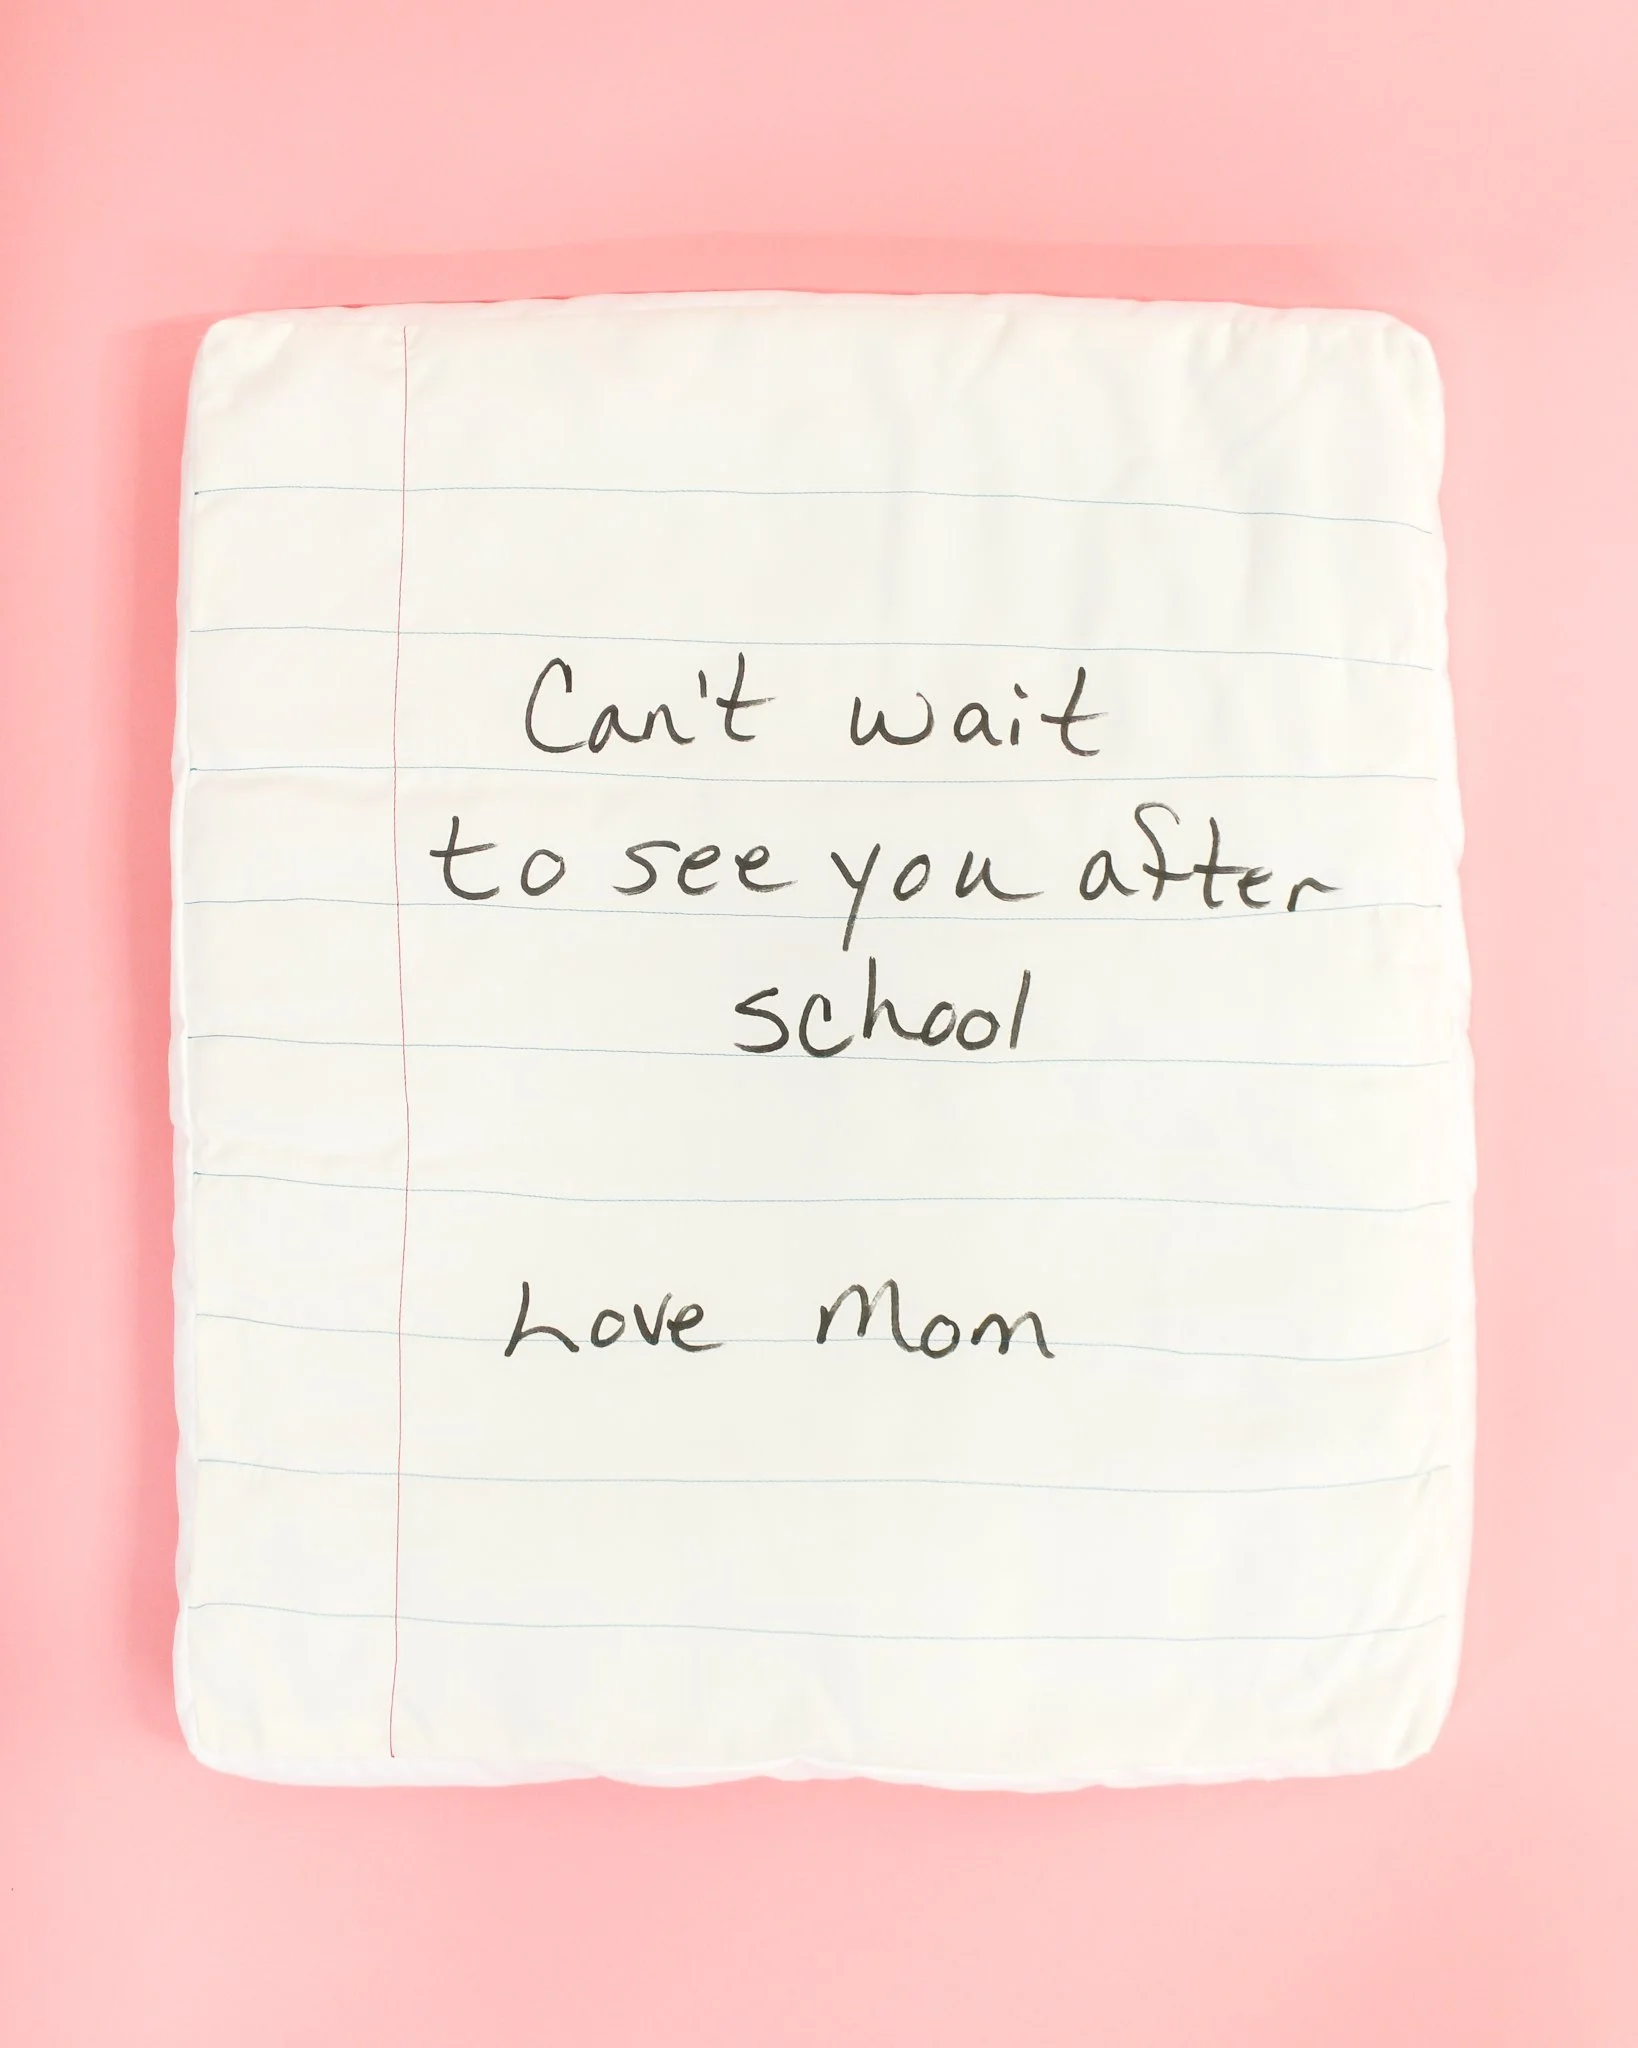 Can't wait
to see you after
school
Love Mom